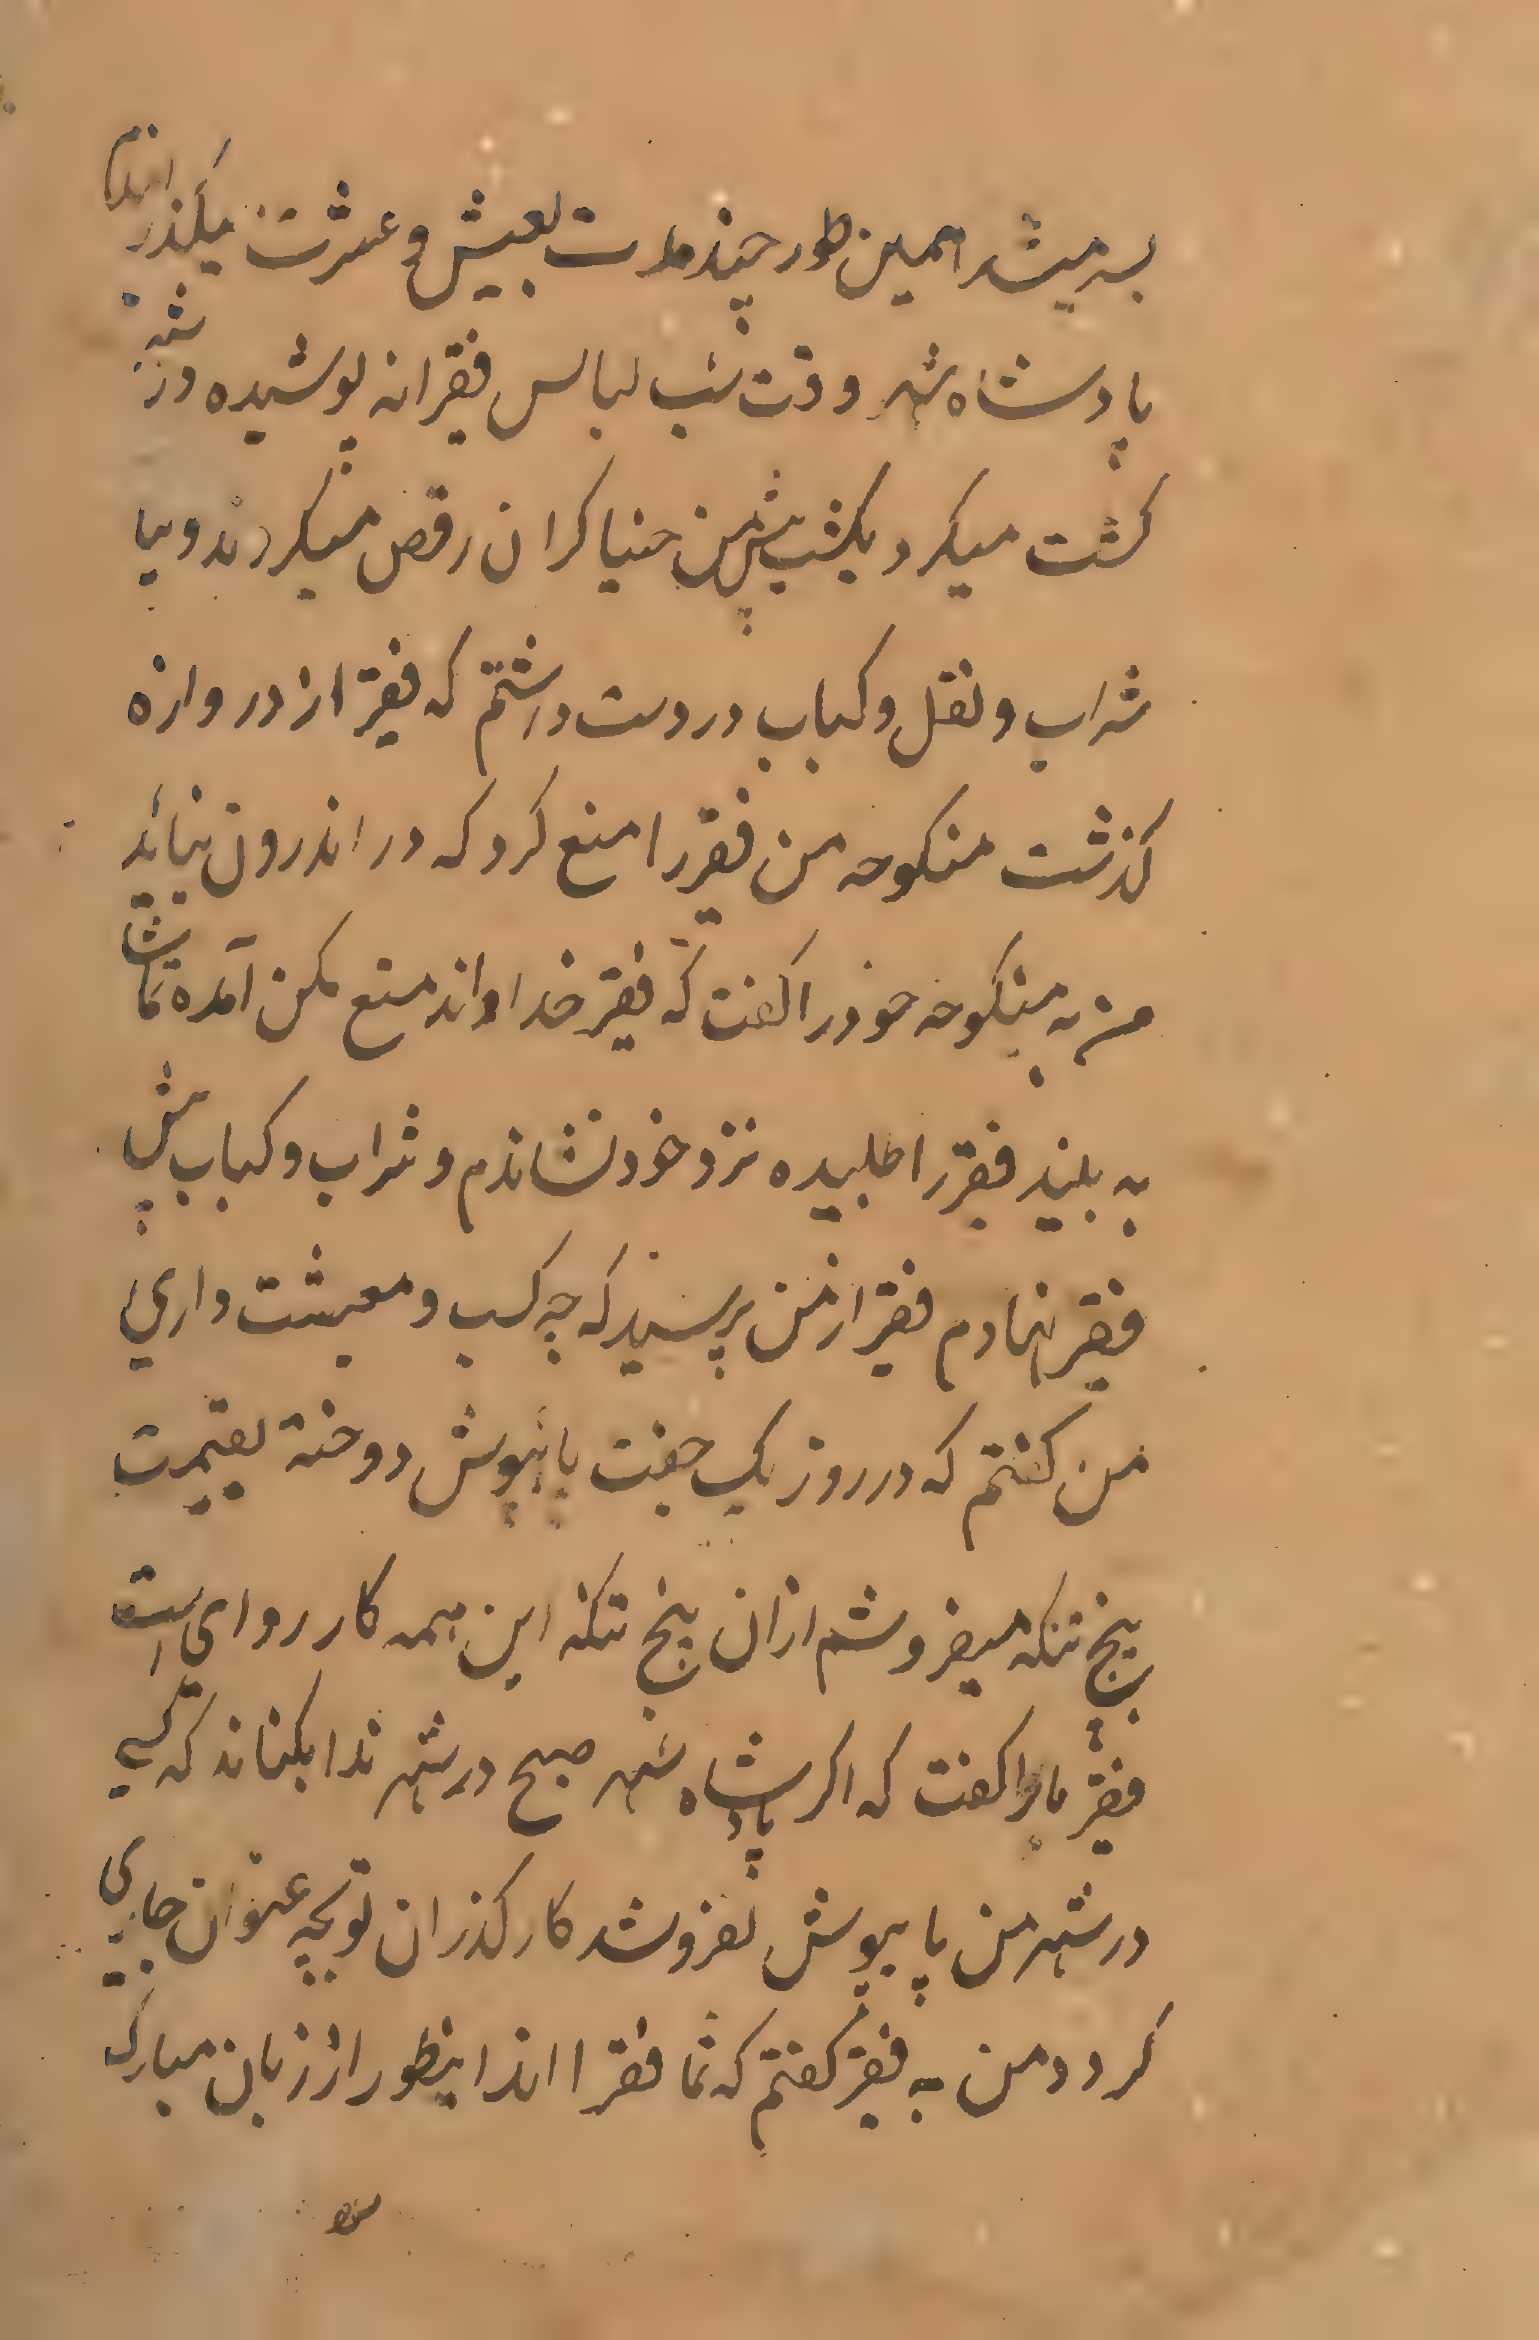 بسر میشد همین طور چند مدت بعیش و عشرت میگذرانیدم
پادشاه شهر وقت شب لباس فقرانه پوشیده در شهر
گشت میکرد یکشب پیش من خنیاگران رقص میکردند و پیا
شراب و نقل و کباب در دست داشتم که فقیر از دروازه
گذشت منکوحه من فقیر را منع کرد که در اندرون نیاید
من به منکوحه خود را گفت که فقیر خدا واند منع مکن آمده تماشا
به بیند فقیر را طلبیده نزد خود نشاندم و شراب و کباب پیش
فقیر نهادم فقیر از من پرسید که چه کسب و معیشت داری
من گفتم که در روز یک جفت پاپوش دوخته بقیمت
پنج تنکه میفروشم ازان پنج تنکه این همه کار روای است
فقیر مرا گفت که اگر پادشاه شهر صبح در شهر ندا بکناند که کسی
در شهر من پاپوش نفروشد کار گذران تو بچه عنوان جاری
گردد من به فقیر گفتم که شما فقرا اند اینطور از زبان مبارک